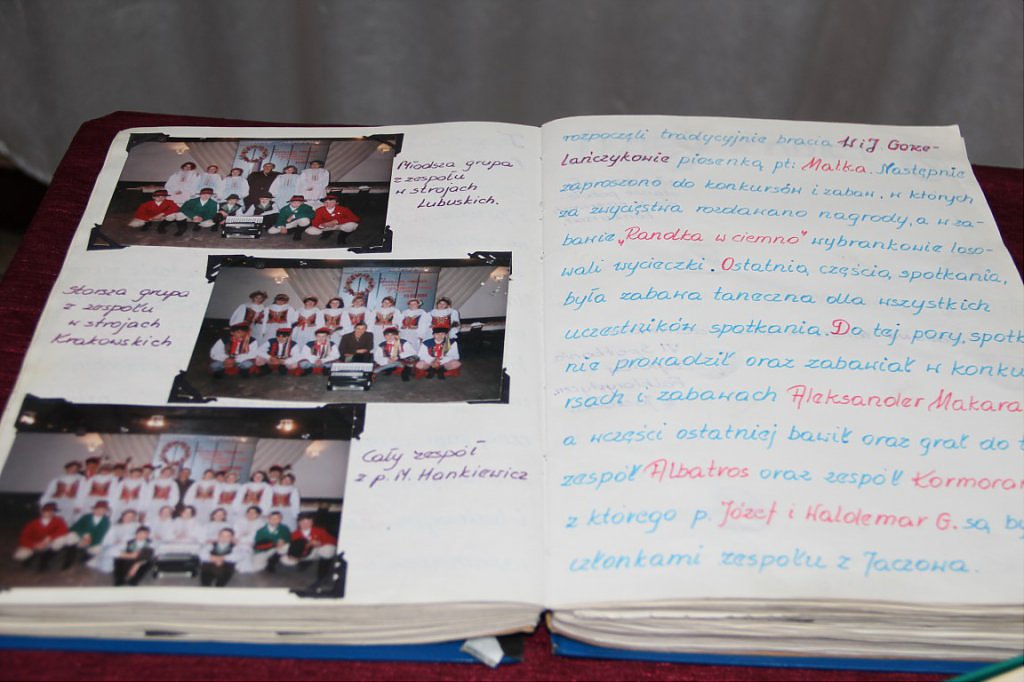 Młodsza grupa
z zespołu
w strojach
Lubuskich.
Starsza grupa
z zespołu
w strojach
Krakowskich
Cały zespół
z p. M. Hankiewicz
rozpoczęli tradycyjnie bracia W i J Gorze-
lańczykowie piosenką pt: Małka. Następnie
zaproszono do konkursów i zabaw, w których
za zwycięstwa rozdawano nagrody, a w za-
bawie „Randka w ciemno" wybrankowie loso-
wali wycieczki. Ostatnią częścią spotkania,
była zabawa taneczna dla wszystkich
uczestników spotkania. Do tej pory, spotk
nie prowadził oraz zabawiał w konku
rsach i zabawach Aleksander Makara
a w części ostatniej bawił oraz grał do t
zespół Albatros oraz zespół Kormoran
z którego p. Józef i Waldemar G. są by
członkami zespołu z Jaczowa.